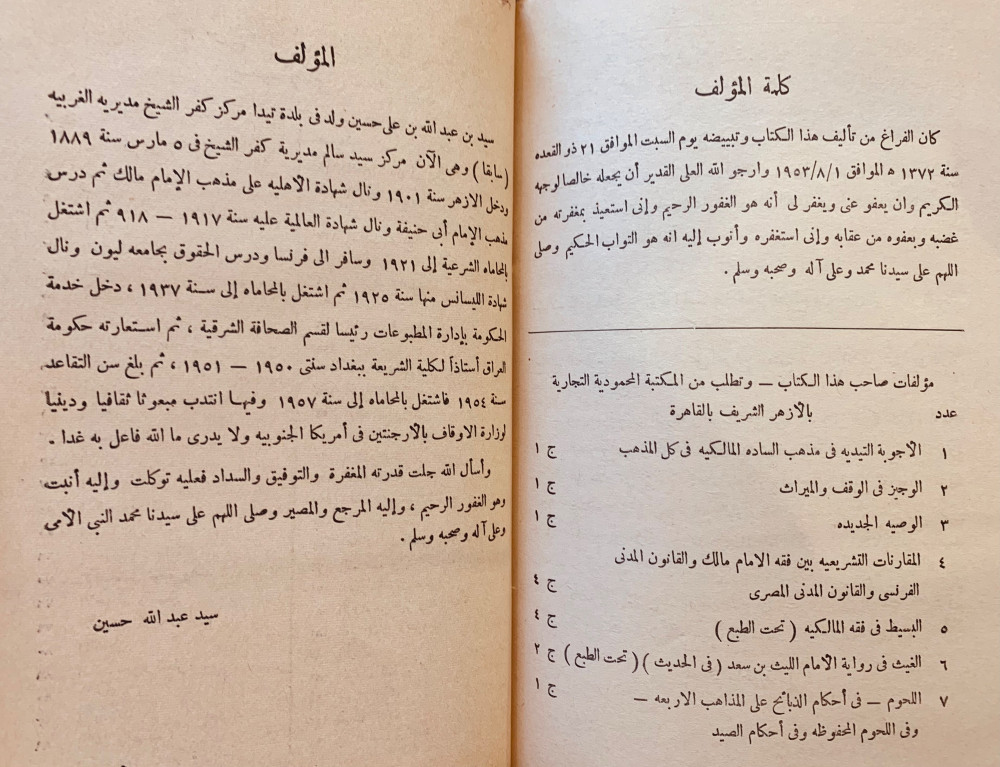 كلمة المؤلف
كان الفراغ من تأليف هذا الكتاب وتبييضه يوم السبت الموافق ٢١ ذو القعده
سنة ١٣٧٢ ه الموافق ١٩٥٣/٨/١ وارجو الله العلى القدير أن يجعله خالصا لوجهه
الكريم وان يعفو عنى ويغفر لى أنه هو الغفور الرحيم وإنى استعيذ بمغفرته من
غضبه وبعفوه من عقابه وإنى استغفره وأنوب إليه انه هو التواب الحكيم وصلى
اللهم على سيدنا محمد وعلى آله وصحبه وسلم .
مؤلفات صاحب هذا الكتاب — وتطلب من المكتبة المحمودية التجارية
عدد بالأزهر الشريف بالقاهرة
١ الأجوبة التيديه فى مذهب الساده المالكيه فى كل المذهب ج ١
٢ الوجيز فى الوقف والميراث ج ١
٣ الوصيه الجديده ج ١
٤ المقارنات التشريعيه بين فقه الامام مالك والقانون المدنى
الفرنسى والقانون المدنى المصرى ج ٤
٥ البسيط فى فقه المالكيه ( تحت الطبع ) ج ٤
٦ الغيث فى رواية الامام الليث بن سعد ( فى الحديث ) ( تحت الطبع ) ج ٢
٧ اللحوم — فى أحكام الذبائح على المذاهب الاربعه — ج ١
وفى اللحوم المحفوظه وفى أحكام الصيد
المؤلف
سيد بن عبد الله بن على حسين ولد فى بلدة تيدا مركز كفر الشيخ مديريه الغربيه
(سابقا) وهى الآن مركز سيد سالم مديرية كفر الشيخ فى ٥ مارس سنة ١٨٨٩
ودخل الازهر سنة ١٩٠١ ونال شهادة الأهليه على مذهب الإمام مالك ثم درس
مذهب الإمام أبى حنيفة ونال شهادة العالمية عليه سنة ١٩١٧ — ٩١٨ ثم اشتغل
بالمحاماه الشرعية إلى ١٩٢١ وسافر الى فرنسا ودرس الحقوق بجامعه ليون ونال
شهادة الليسانس منها سنة ١٩٢٥ ثم اشتغل بالمحاماه إلى سنة ١٩٣٧ ، دخل خدمة
الحكومة بإدارة المطبوعات رئيسا لقسم الصحافة الشرقية ، ثم استعارته حكومة
العراق أستاذاً لكلية الشريعة ببغداد سنتى ١٩٥٠ — ١٩٥١ ، ثم بلغ سن التقاعد
سنة ١٩٥٤ فاشتغل بالمحاماه إلى سنة ١٩٥٧ وفيها انتدب مبعوثا ثقافيا ودينيا
لوزارة الاوقاف بالأرجنتين فى أمريكا الجنوبيه ولا يدرى ما الله فاعل به غدا .
وأسأل الله جلت قدرته المغفرة والتوفيق والسداد فعليه توكلت وإليه أنبت
وهو الغفور الرحيم ، وإليه المرجع والمصير وصلى اللهم على سيدنا محمد النبي الأمى
وعلى آله وصحبه وسلم .
سيد عبد الله حسين